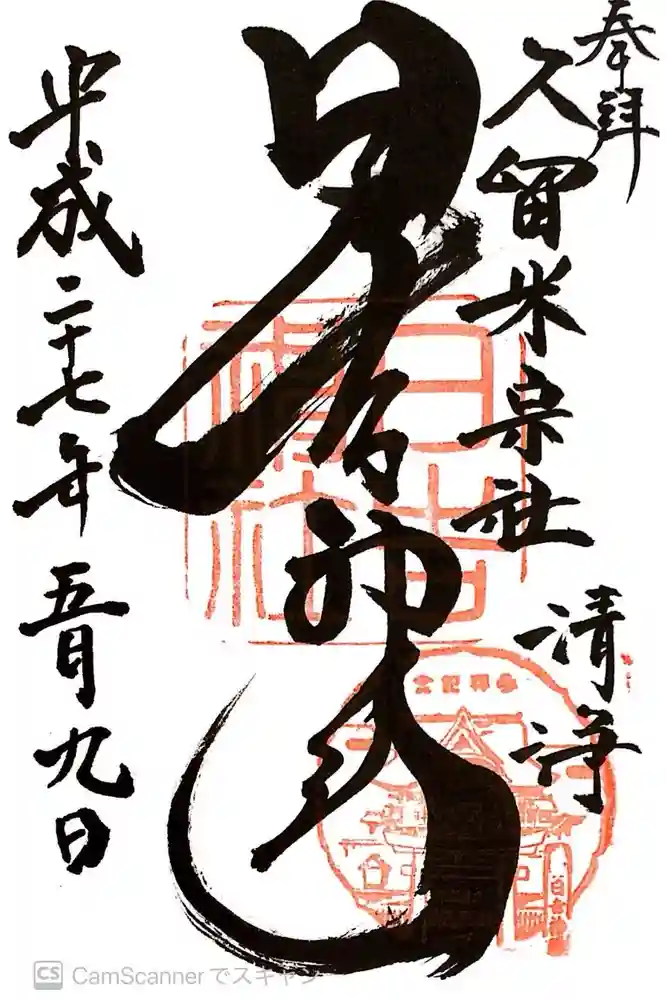 奉拝
久留米宗社
清浄
日吉神社
平成二十七年五月九日
日吉神社
CS CamScanner でスキャン